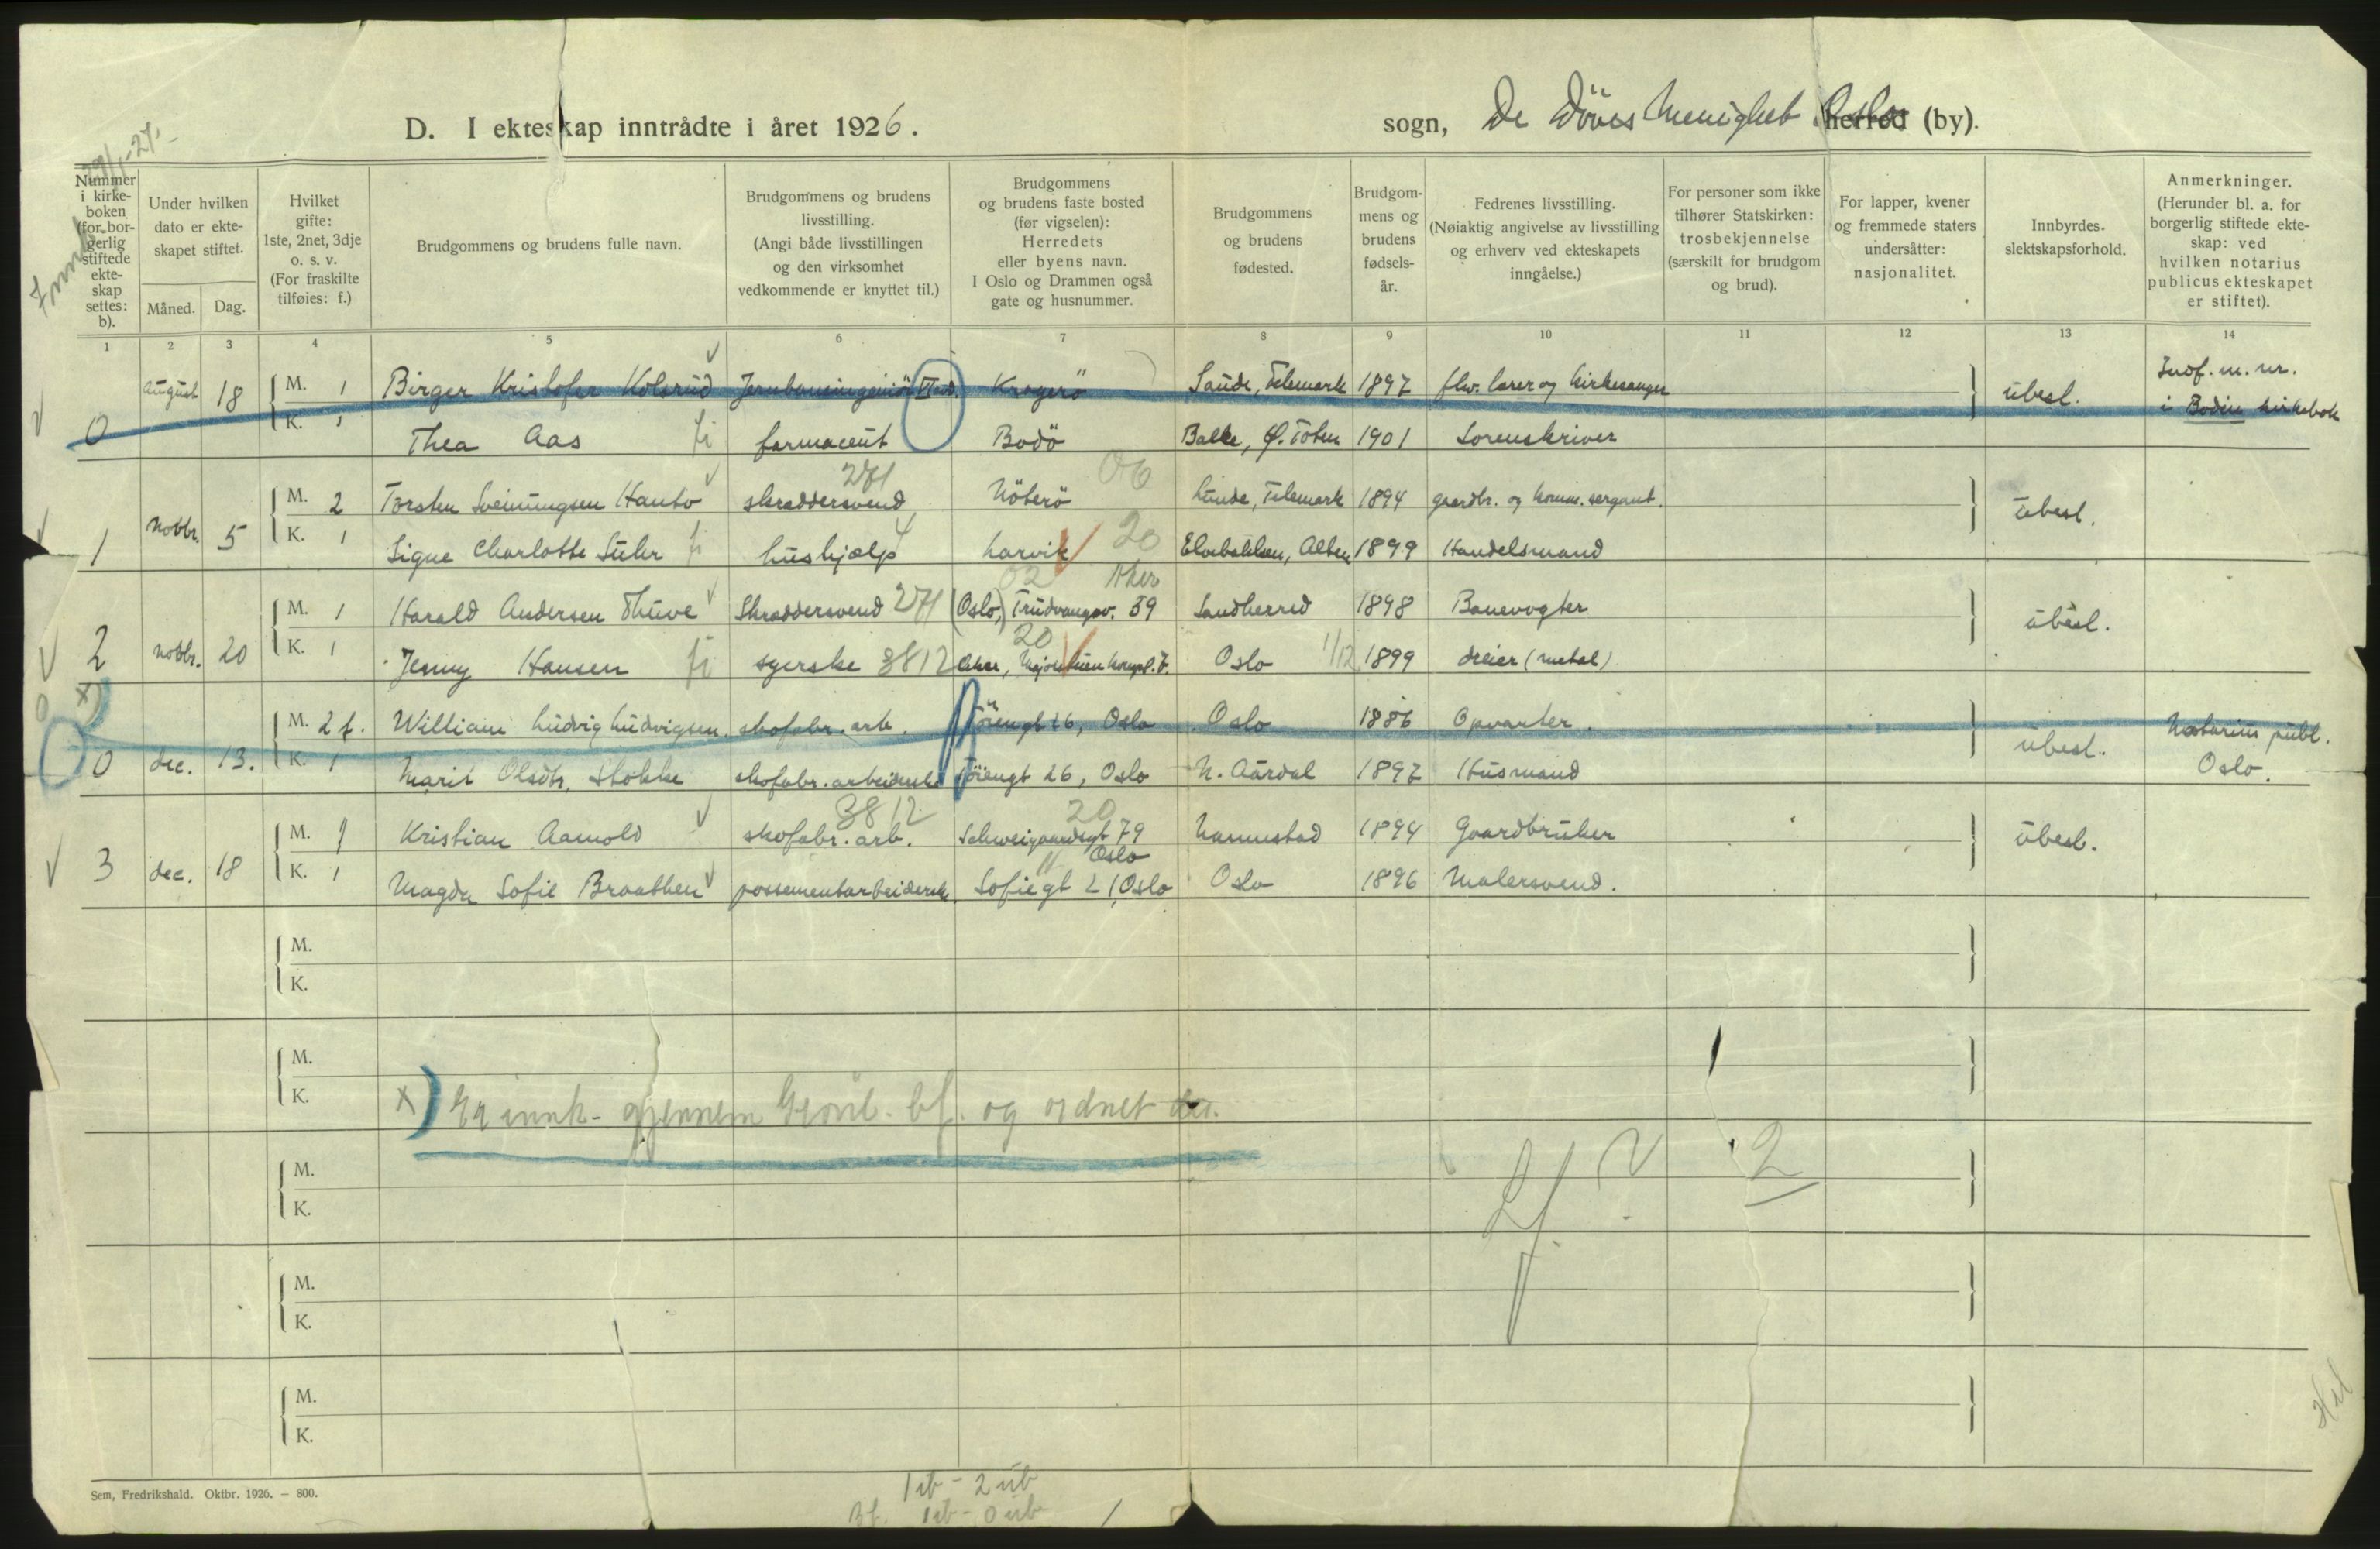 D. I ekteskap inntrådte i året 1926.
sogn, De Döves Menighet Oslo herred (by).
Nummer i kirke-boken (for bor-gerlig stiftede ekte-skap settes: b).
Under hvilken dato er ekte-skapet stiftet.
Måned. Dag.
Hvilket gifte: 1ste, 2net, 3dje o. s. v. (For fraskilte tilføies: f.)
Brudgommens og brudens fulle navn.
Brudgommens og brudens livsstilling. (Angi både livsstillingen og den virksomhet vedkommende er knyttet til.)
Brudgommens og brudens faste bosted (før vigselen): Herredets eller byens navn. I Oslo og Drammen også gate og husnummer.
Brudgommens og brudens fødested.
Brudgom-mens og brudens fødsels-år.
Fedrenes livsstilling. (Nøiaktig angivelse av livsstilling og erhverv ved ekteskapets inngåelse.)
For personer som ikke tilhører Statskirken: trosbekjennelse (særskilt for brudgom og brud).
For lapper, kvener og fremmede staters undersåtter: nasjonalitet.
Innbyrdes slektskapsforhold.
Anmerkninger. (Herunder bl. a. for borgerlig stiftede ekte-skap: ved hvilken notarius publicus ekteskapet er stiftet).
1 2 3 4 5 6 7 8 9 10 11 12 13 14
0 August 18 M. 1 Birger Kristofer Kolsrud Jernbaneingeniör Kragerö Saude, Telemark 1897 lærer og kirkesanger ubesl. Indf. m. nr. i Bodin kirkebok
K. 1 Thea Aas farmaceut Bodö Balke, Ø. Toten 1901 Sorenskriver
1 Novbr. 5 M. 2 Torsten Sveinungsen Hauto skraddersvend 271 Nöterö 06 Lunde, Telemark 1894 gaardbr. og komm. sergant. ubesl.
K. 1 Signe Charlotte Suhr fi hushjælp Larvik 20 Elvebakken, Alten 1899 Handelsmand
2 Novbr. 20 M. 1 Harald Andersen Thuve Skraddersvend 271 (Oslo,) Trudvangsv. 39 Aker 02 Sandherred 1898 Banevogter ubesl.
K. 1 Jenny Hansen fi syerske 3812 Aker, 20 Oslo 1/12 1899 dreier (metal)
x)
0 dec. 13. M. 2 f. William Ludvig Ludvigsen skofabr. arb. Töiengt 26, Oslo Oslo 1886 Opvarter. ubesl. Notarius publ. Oslo.
K. 1 Marit Olsdtr. Stokke skofabr. arbeiderske Töiengt 26, Oslo N. Aurdal 1897 Husmand
3 dec. 18 M. 1 Kristian Aamold skofabr. arb. 3812 Schweigaardsgt 79 Oslo 20 Nannestad 1894 Gaardbruker ubesl.
K. 1 Magda Sofie Braathen possementarbeiderske Sofiegt 21, Oslo Oslo 1896 Malersvend.
M.
K.
M.
K.
x) Er innk. gjennem og ordnet der.
M.
K.
2
M.
K.
M.
K.
Sem, Fredrikshald. Oktbr. 1926. — 800.
1 ib - 2 ub
Bf. 1 ib - 0 ub